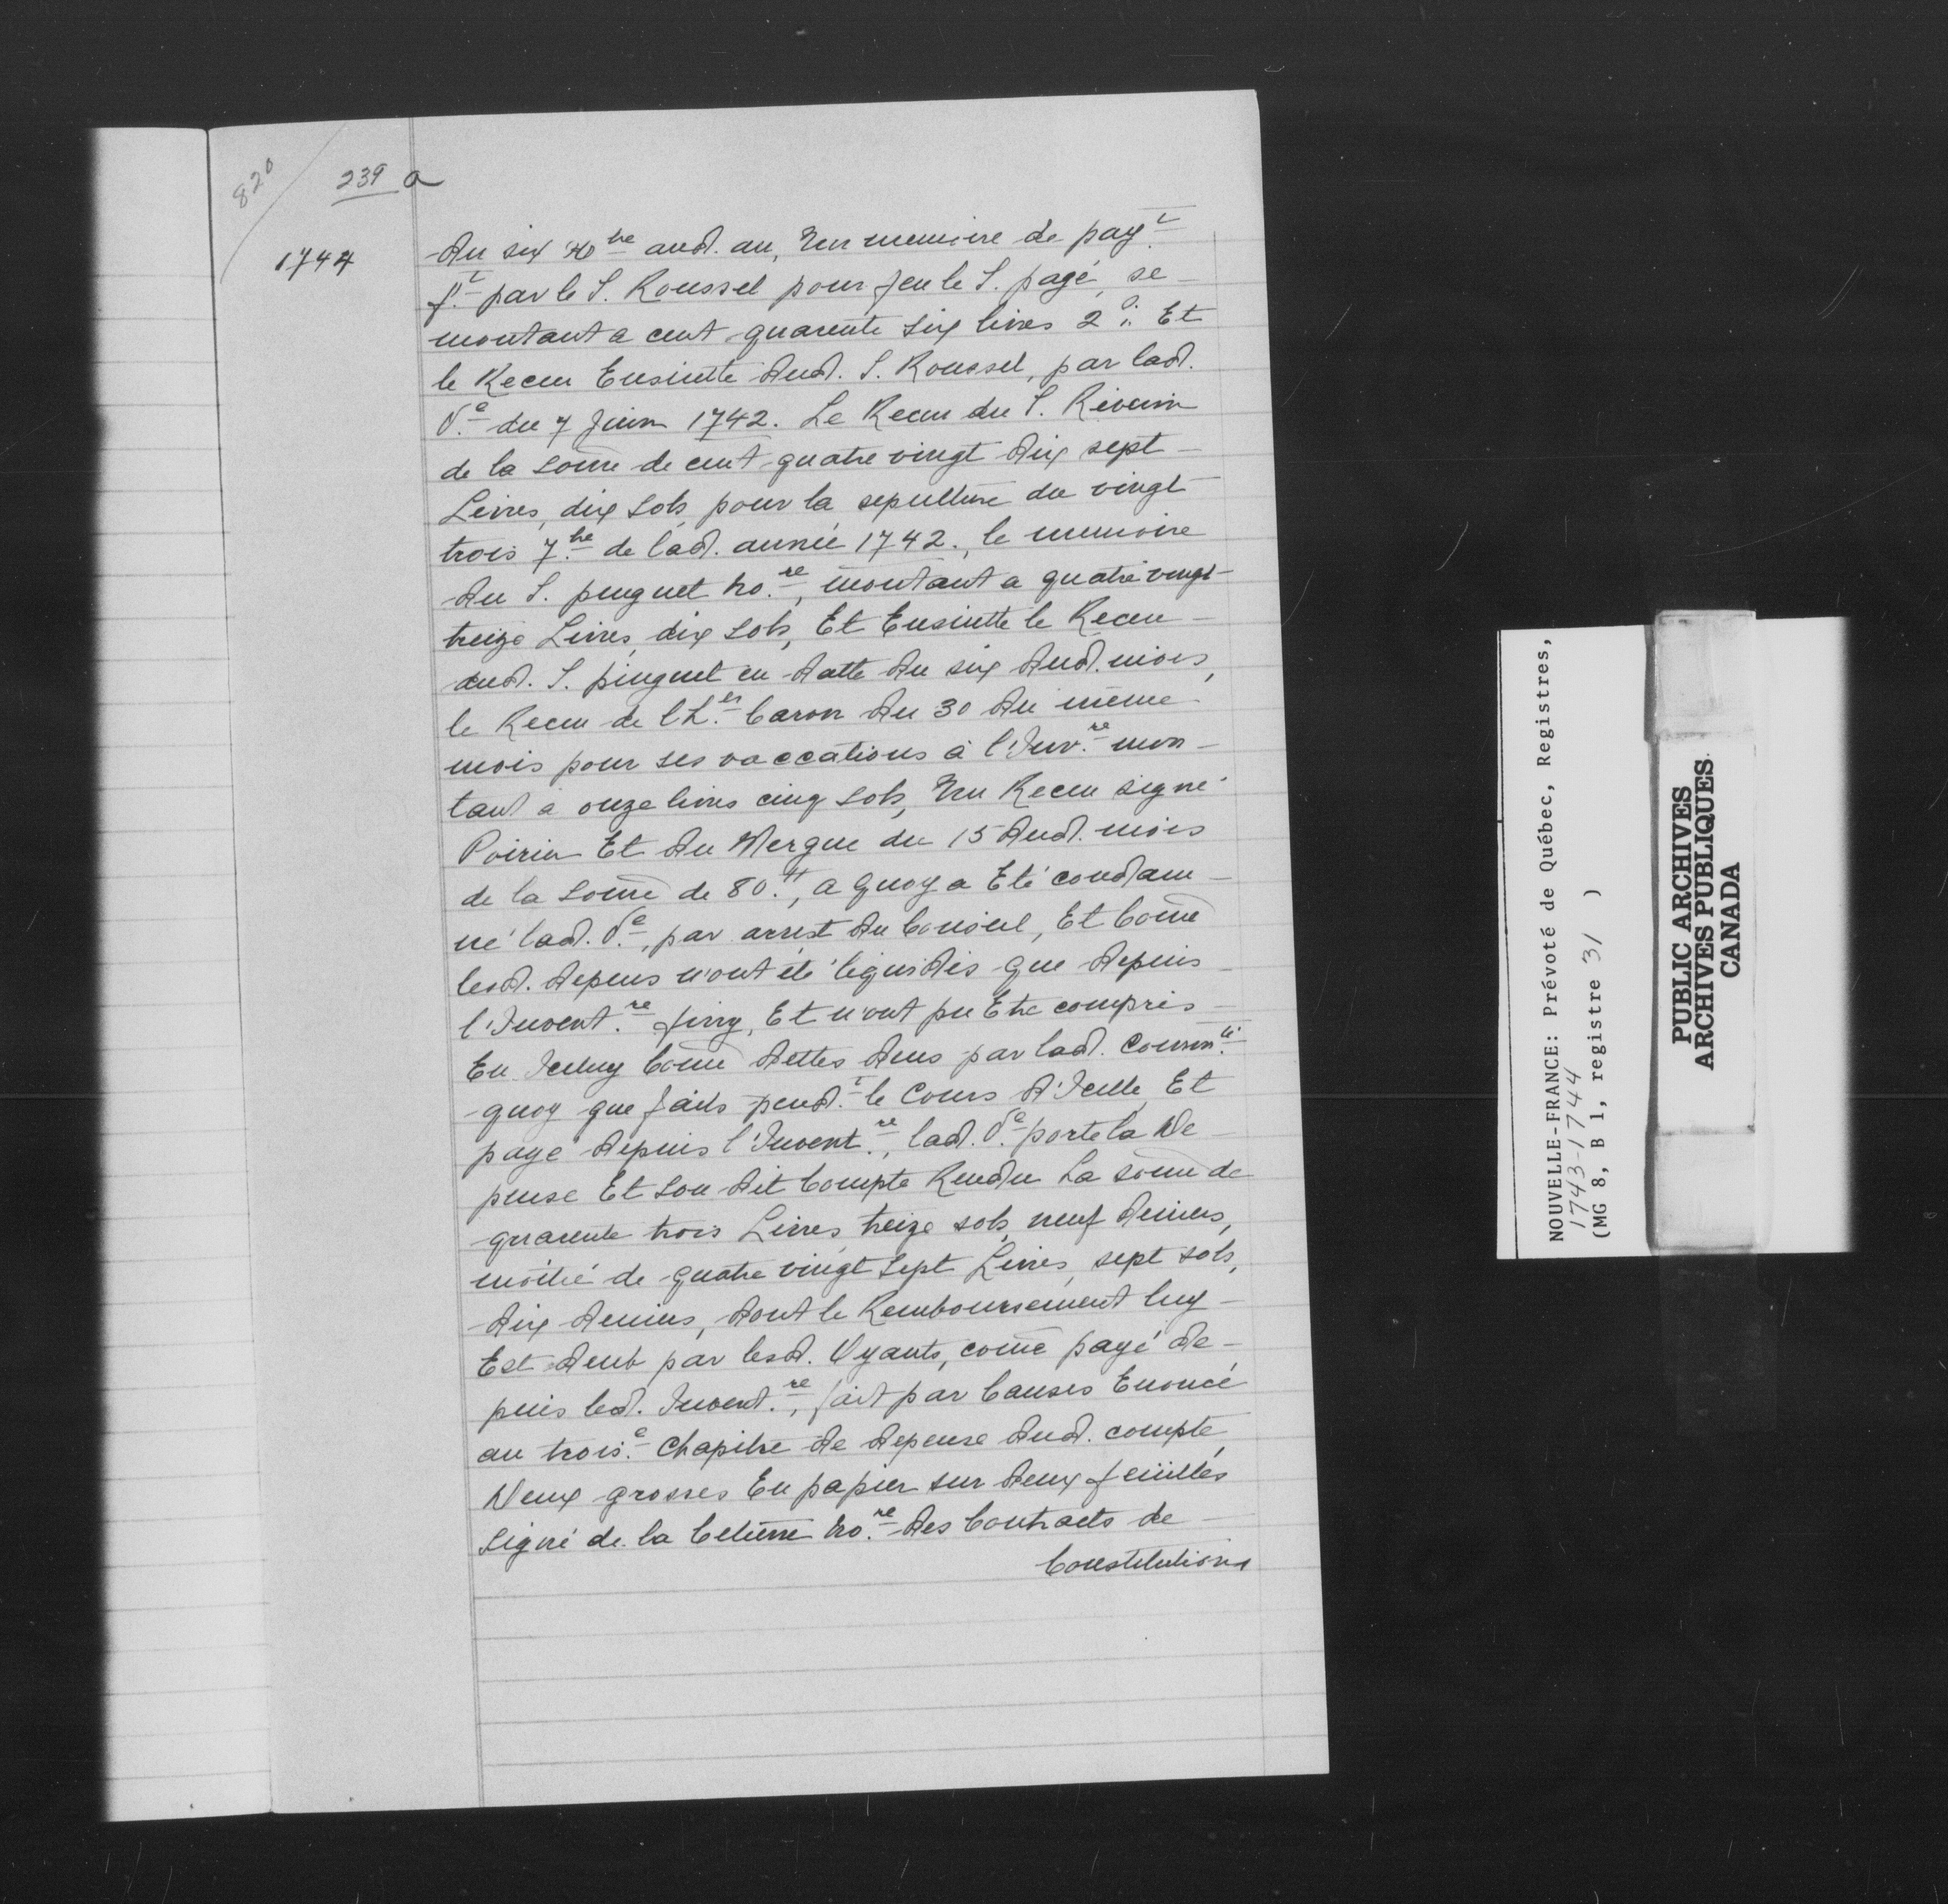 820
239 a
1744
du six Xbre aud. an, Un memoire de payt
ft par le S. Roussel pour feu le S. pagé, se
montant a cent quarente six livres 2 s. Et
le Receu Ensuitte dud. S. Roussel, par lad.
Ve du 7 Juin 1742. Le Receu du S. Riverin
de la some de cent quatre vingt dix sept
Livres, dix sols pour la sepulture du vingt
trois 7bre de lad. année 1742., le memoire
du S. pinguet nore, montant a quatre vingt
treize Livres, dix sols, Et Ensuitte le Receu
dud. S. pinguet en datte du six dud. mois,
le Receu de l'her Caron du 30 du même
mois pour ses vaccations à l'Invre mon-
tant à onze livres cinq sols, Un Receu signé
Poirier Et du Mergue du 15 dud. mois
de la some de 80.ll, a quoy a Eté condam-
né lad. Ve, par arrest du Conseil, Et Come
lesd. depens n'ont été liquidés que depuis
l'Inventre finy, Et n'ont pu Etre compris
En Iceluy Come dettes dues par lad. Commté
quoy que faits pendt le Cours d'Icelle, Et
payé depuis l'Inventre, lad. Ve porte la De-
pense Et son dit Compte Rendu La some de
quarente trois Livres, treize sols, neuf deniers,
moitié de quatre vingt sept Livres, sept sols,
dix deniers, dont le Remboursement luy
Est deub par lesd. Oyants, come payé de-
puis led. Inventre, fait par Causes Enoncé
au troise Chapitre de depense dud. compte,
Deux grosses En papier sur deux feuilles
signé de la Cetiere nore des Contracts de
Constitutions
NOUVELLE-FRANCE: Prévoté de Québec, Registres,
1743-1744
(MG 8, B 1, registre 31 )
PUBLIC ARCHIVES
ARCHIVES PUBLIQUES
CANADA